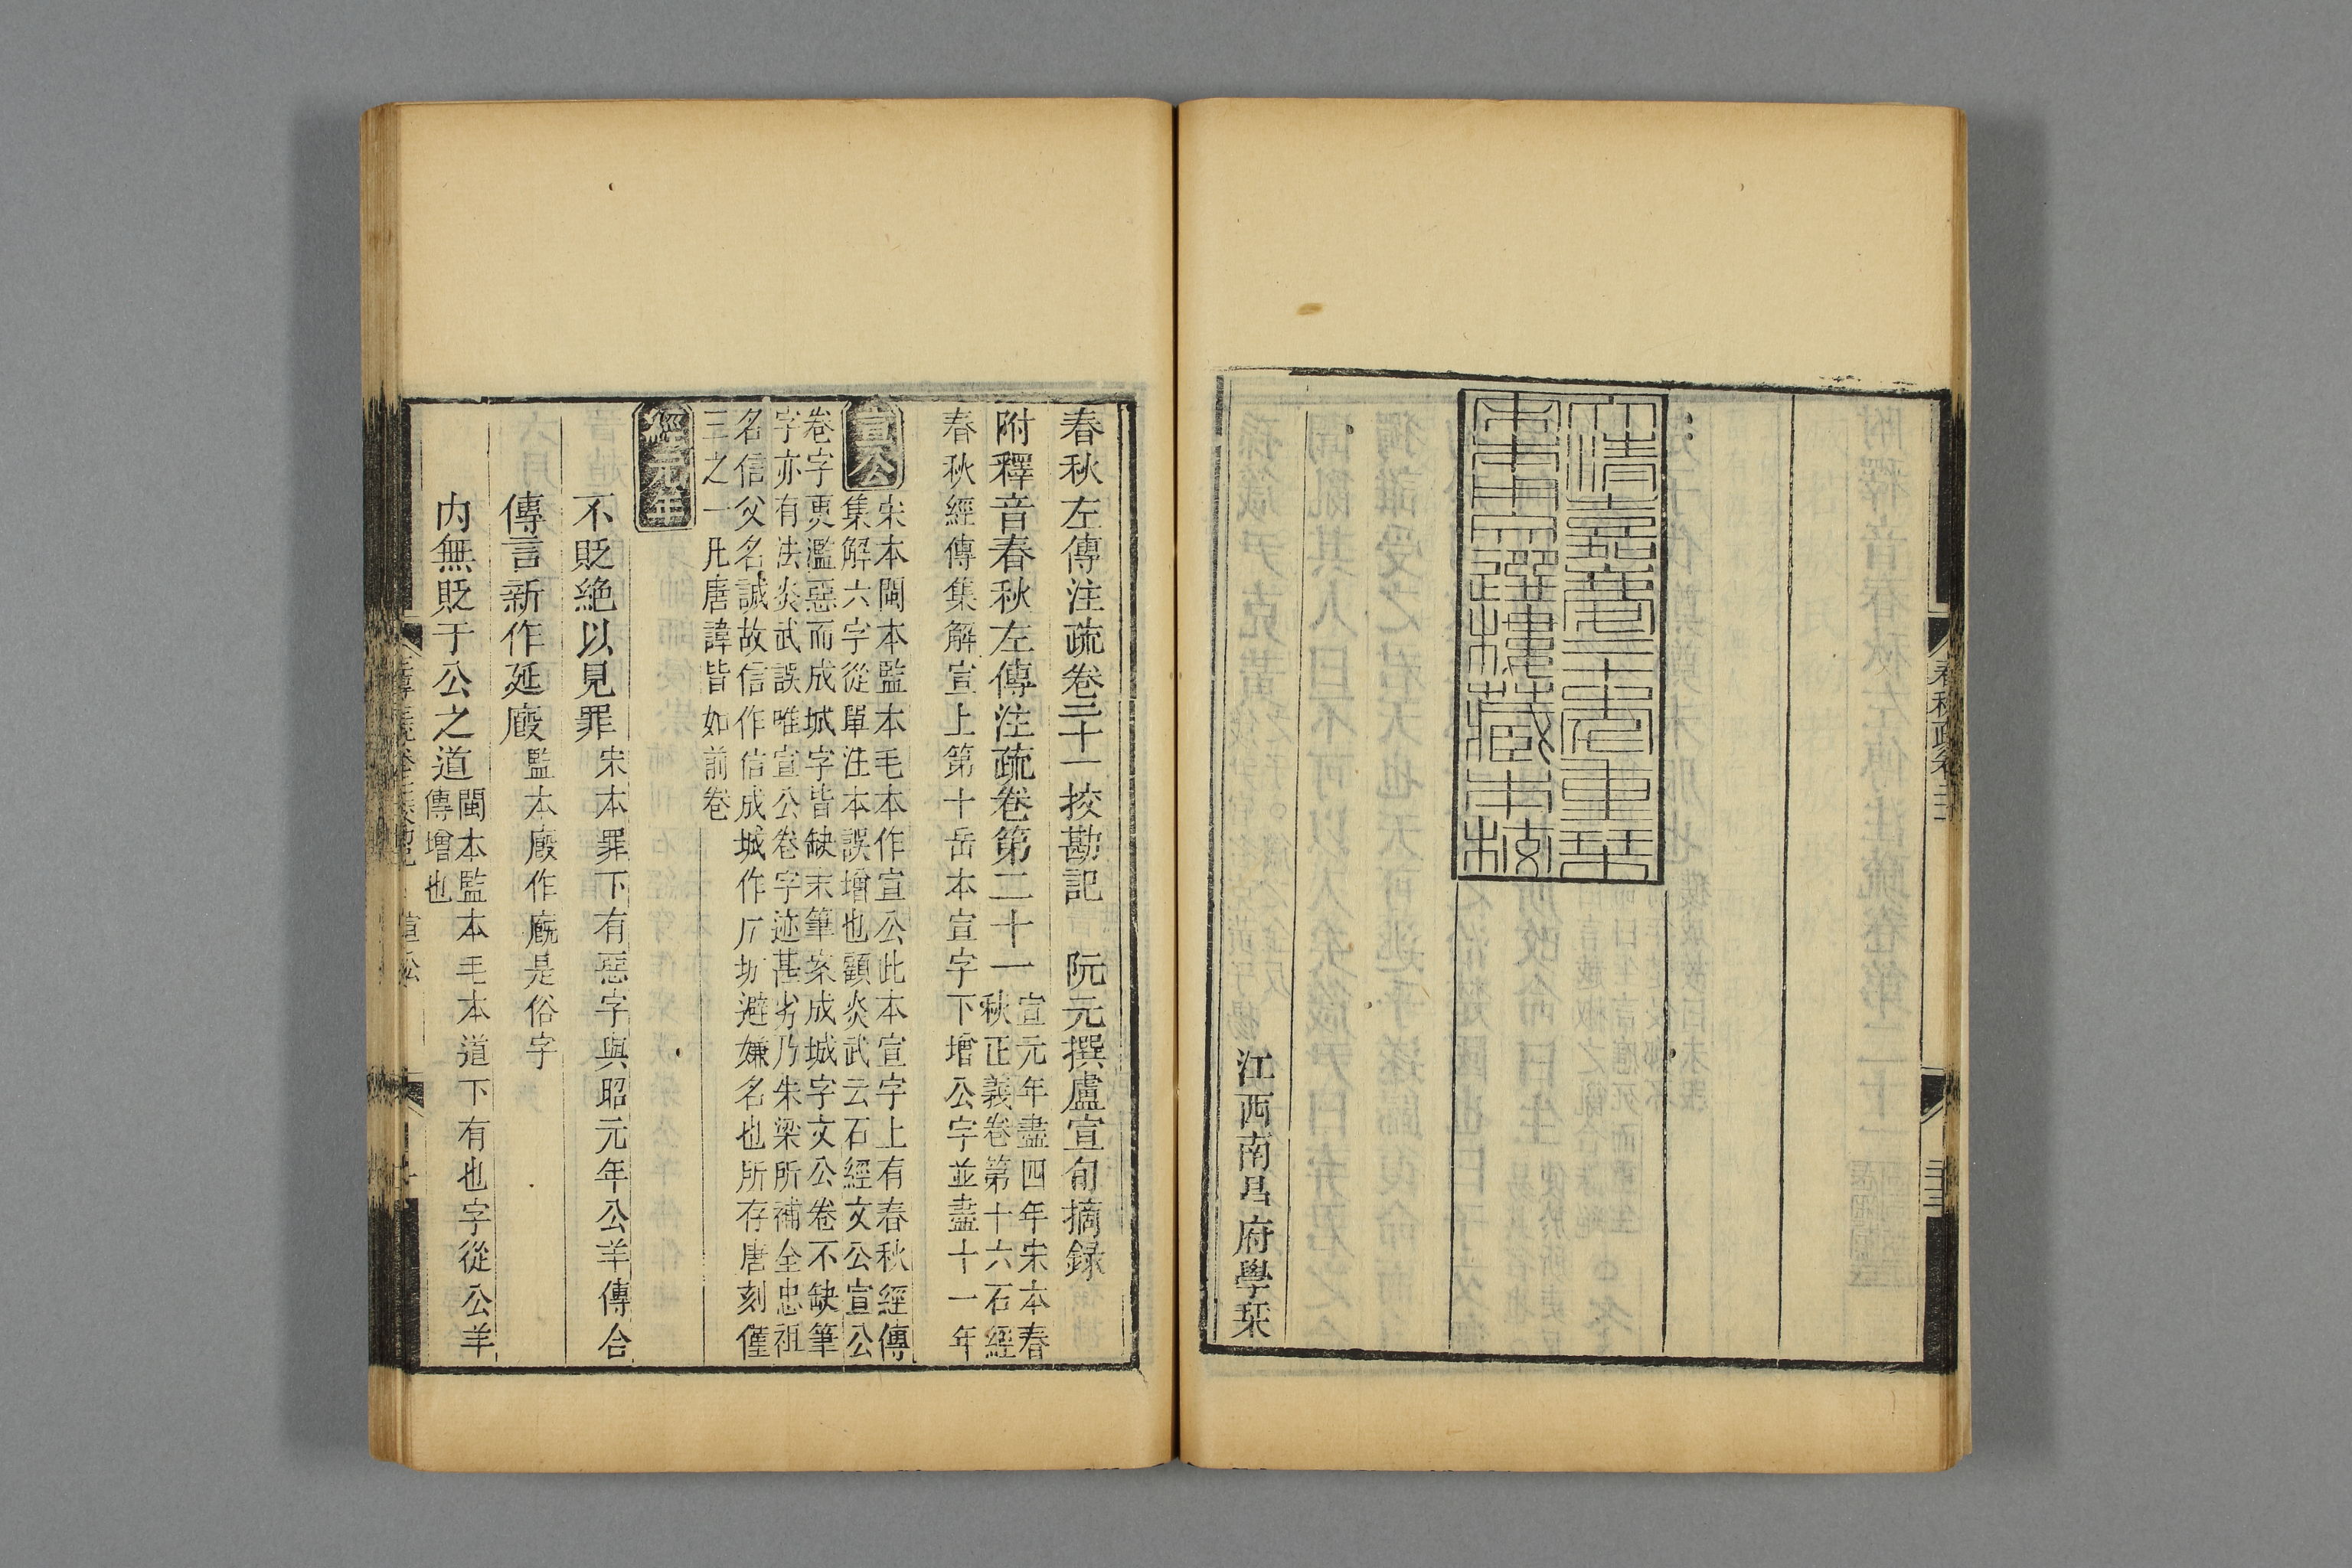 大清嘉慶二十年重栞
宋本用文選樓藏本校
江西南昌府學栞
春秋左傳注疏卷二十一挍勘記　阮元撰盧宣旬摘録
附釋音春秋左傳注疏卷第二十一
宣元年盡四年宋本春
秋正義卷第十六石經
春秋經傳集解宣上第十岳本宣字下增公字並盡十一年
宣公
宋本閩本監本毛本作宣公此本宣字上有春秋經傳
集解六字從單注本誤增也顧炎武云石經文公宣公
卷字更濫惡而成城字皆缺末筆案成城字文公卷不缺筆
字亦有法炎武誤唯宣公卷字迹甚劣乃朱梁所補全忠祖
名信父名誠故信作信成城作厈坊避嫌名也所存唐刻僅
三之一凡唐諱皆如前卷
經元年
不貶絶以見罪
宋本罪下有惡字與昭元年公羊傳合
傳言新作延廄
監本廄作廐是俗字
内無貶于公之道
閩本監本毛本道下有也字從公羊
傳增也